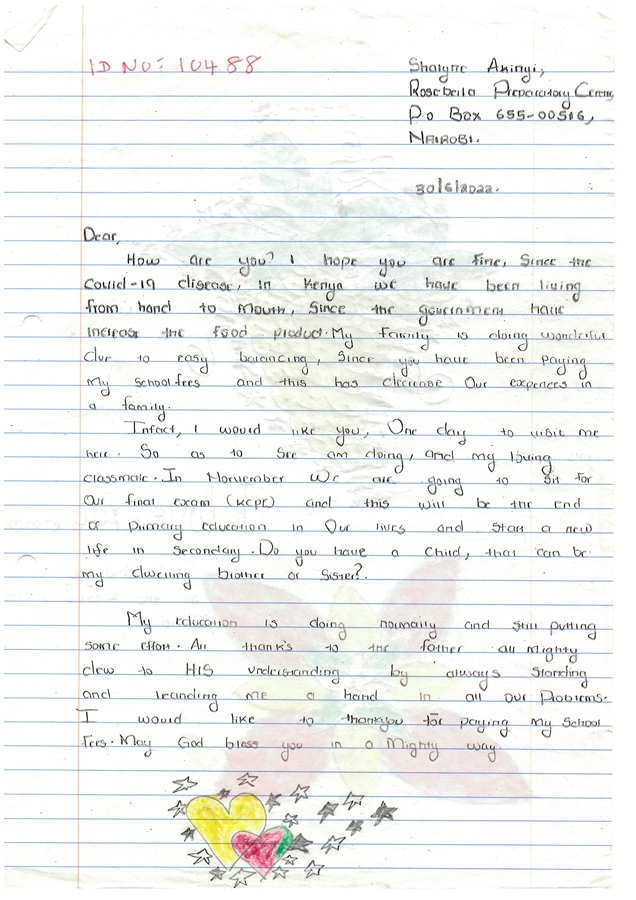 ID NO: 10488
Shalyne Akinyi,
Rosebella Preparatory Centre,
P.o Box 655-00516,
NAIROBI.
30/6/2022.
Dear,
How are you? I hope you are fine, Since the
Covid-19 disease, in Kenya we have been living
from hand to mouth, Since the government have
increase the food product. My Family is doing wonderful
due to easy balancing, Since you have been paying
My school fees and this has decrease Our expences in
a family.
Infact, I would like you, One day to visit me
here. So as to see am doing, and my loving
classmate. In November We are going to sit for
Our final exam (KCPE) and this will be the end
of primary education in Our lives and start a new
life in Secondary. Do you have a child, that can be
my dwelling brother or sister?.
My education is doing normally and still putting
some effort. All thanks to the father all mighty
dew to HIS understanding by always standing
and leanding me a hand in all our problems.
I would like to thankyou for paying my School
Fees. May God bless you in a Mighty way.